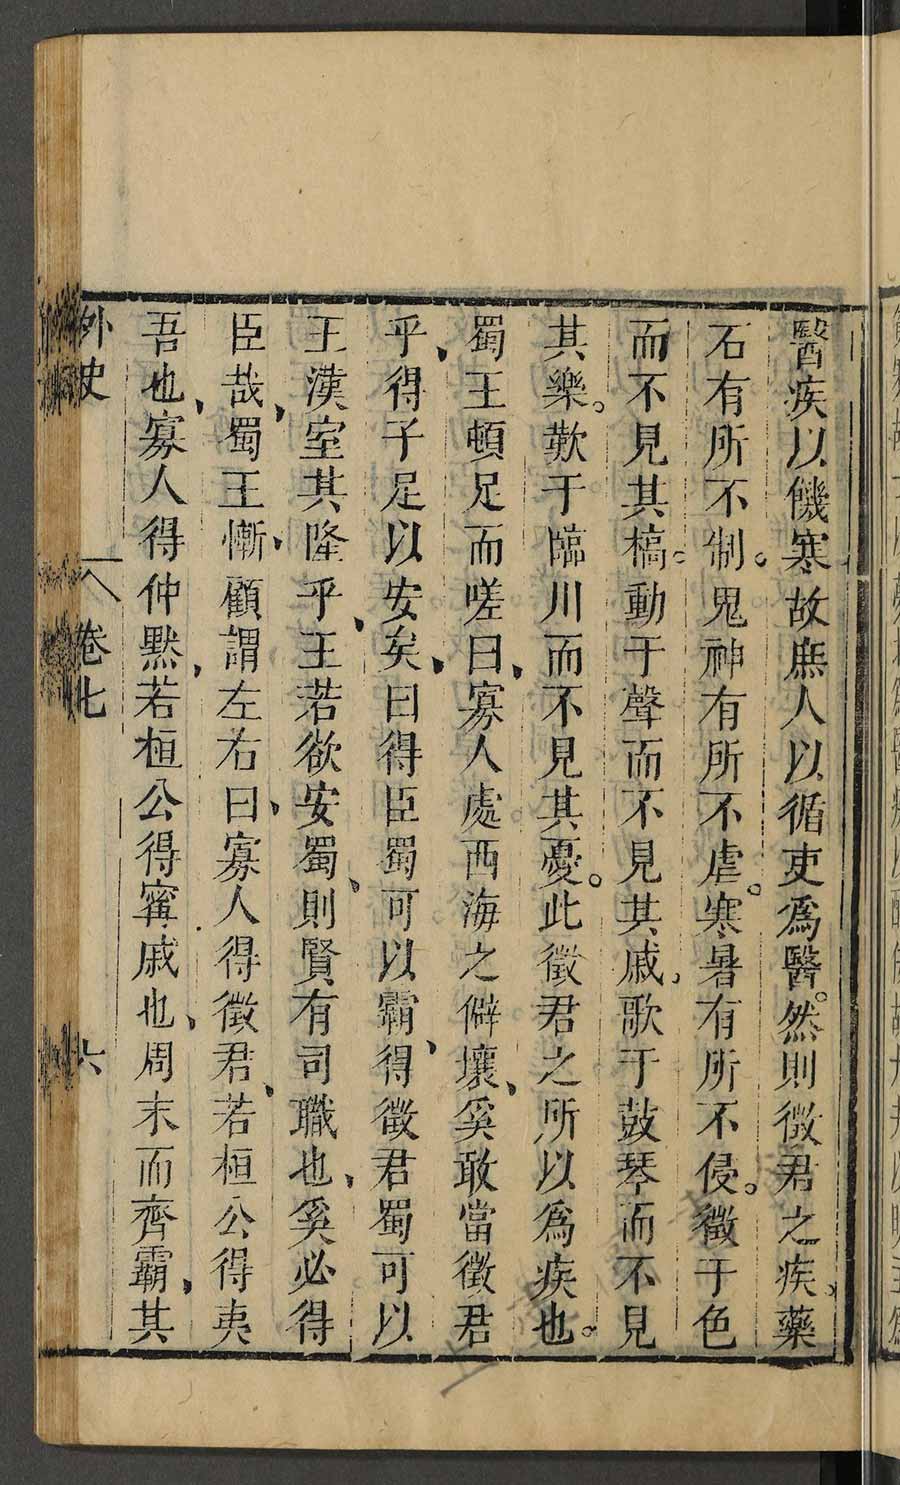 醫疾以饑寒故庶人以循吏爲醫。然則徴君之疾、藥
石有所不制。鬼神有所不虐。寒暑有所不侵。徴于色
而不見其槁。動于聲而不見其戚、歌于鼓琴而不見
其樂。歎于臨川而不見其憂。此徴君之所以爲疾也。
蜀王頓足而嗟曰、寡人處西海之僻壤、奚敢當徴君
乎、得子足以安矣、曰得臣蜀可以霸、得徴君蜀可以
王漢室其隆乎、王若欲安蜀、則賢有司職也、奚必得
臣哉、蜀王慚、顧謂左右曰、寡人得徴君、若桓公得夷
吾也、寡人得仲黙、若桓公得甯戚也、周末而齊霸、其
外史
卷七
六